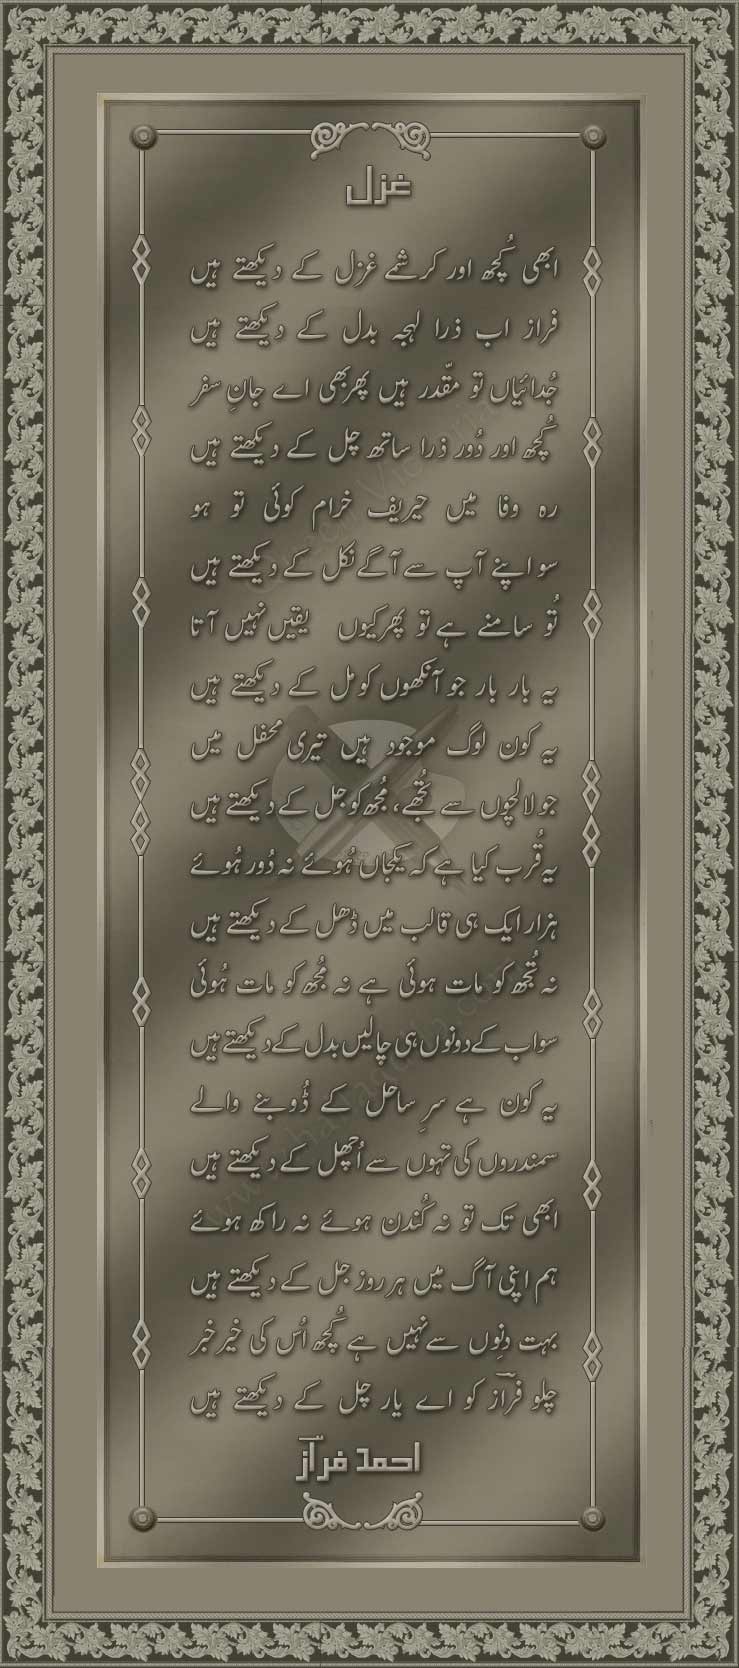 غزل
ابھی کُچھ اور کرشمے غزل کے دیکھتے ہیں
فراز اب ذرا لہجہ بدل کے دیکھتے ہیں
جُدائیاں تو مقّدر ہیں پھر بھی اے جانِ سفر
کُچھ اور دُور ذرا ساتھ چل کے دیکھتے ہیں
رہ وفا میں حیریف خرام کوئی تو ہو
سو اپنے آپ سے آگے نکل کے دیکھتے ہیں
تُو سامنے ہے تو پھر کیوں یقیں نہیں آتا
یہ بار بار جو آنکھوں کو مل کے دیکھتے ہیں
یہ کون لوگ موجود ہیں تیری محفل میں
جو لالچوں سے تُجھے، مُجھ کو جل کے دیکھتے ہیں
یہ قُرب کیا ہے کہ یکجاں ہُوئے نہ دُور ہُوئے
ہزار ایک ہی قالب میں ڈھل کے دیکھتے ہیں
نہ تُجھ کو مات ہوئی ہے نہ مُجھ کو مات ہُوئی
سو اب کے دونوں ہی چالیں بدل کے دیکھتے ہیں
یہ کون ہے سرِ ساحل کے ڈُوبنے والے
سمندروں کی تہوں سے اُچھل کے دیکھتے ہیں
ابھی تک تو نہ کُندن ہوئے نہ راکھ ہوئے
ہم اپنی آگ میں ہر روز جل کے دیکھتے ہیں
بہت دِنوں سے نہیں ہے کُچھ اُس کی خیر خبر
چلو فراز کو اے یار چل کے دیکھتے ہیں
احمد فراز